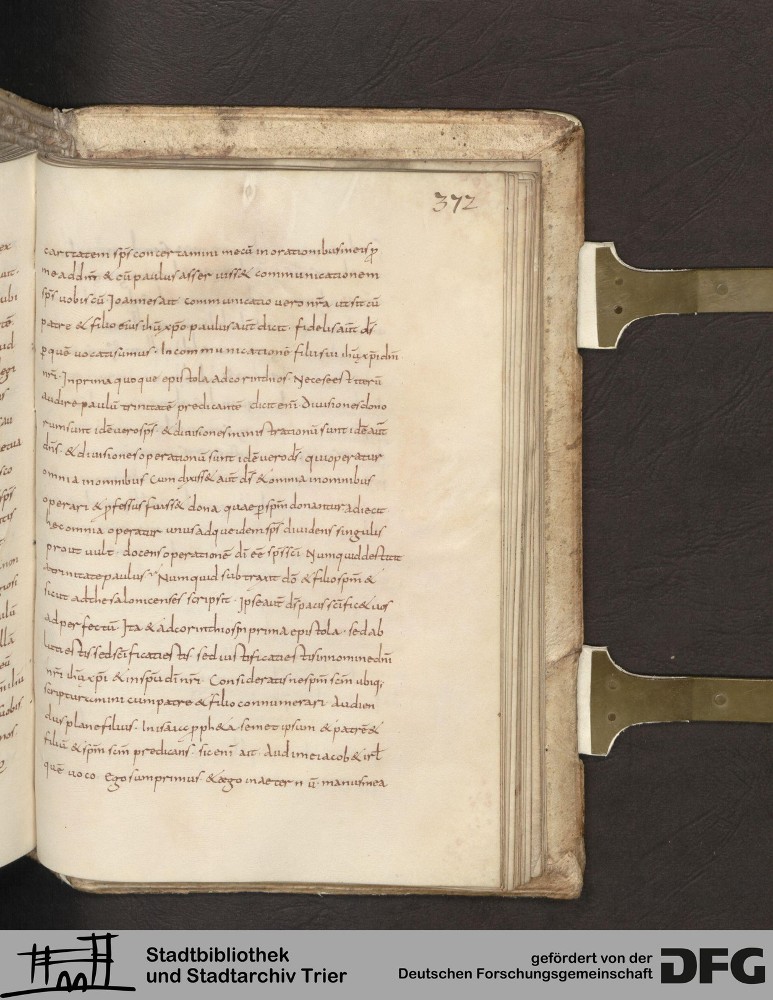 372
caritatem sps̄ concertamini mecū in orationibus meis ꝓ
me addn̄r & cū paulus asseruiss& communicationem
sps̄ uobiscū Ioannes ait communicatio uero nr̄a ut sit cū
patre & filio eius ihū xp̄o paulus aūt dicit. fidelis aūt ds̄
ꝑ quē uocati sumus. In communicationē filii sui ihū xp̄i dn̄i
nr̄i. In prima quoque epistola ad corinthios. Necesse est iterū
audire paulū trinitatē predicantē dicit enī. Diuisiones dono
rum sunt idē uero sps̄. & diuisiones ministrationū sunt idē aūt
dn̄s. & diuisiones operationū sunt idē uero ds̄. qui operatur
omnia in omnibus Cum dixiss& aūt ds̄ & omnia in omnibus
operari & ꝓfessus fuiss& dona quae ꝑ spm̄ donantur adiecit
hec omnia operatur unus adque idem sps̄ diuidens singulis
prout uult. docens operationē dī eē sps̄ scī. Numquid destitit
a trinitate paulus Numquid subtraxit dō & filio spm̄ &
sicut ad thesalonicenses scripsit. Ipse aūt ds̄ pacis scīfic& uos
ad perfectū Ita & ad corinthios in prima epistola. sed ab
luti estis sed scīficati estis sed iustificati estis in nomine dn̄i
nr̄i ihū xp̄i & in spū dī nr̄i. Consideratis ne spm̄ scm̄ ubiq;
scripturi cum patre & filio connumerari. Audien
dus plane filius. In isaiae pph&a semet ipsum & patrē &
filiū & spm̄ scm̄ predicans. sic enī ait. Audi me iacob & irl̄
quē uoco. Ego sum primus & ego in aeternū. manus mea
Stadtbibliothek
und Stadtarchiv Trier
gefördert von der
Deutschen Forschungsgemeinschaft
DFG